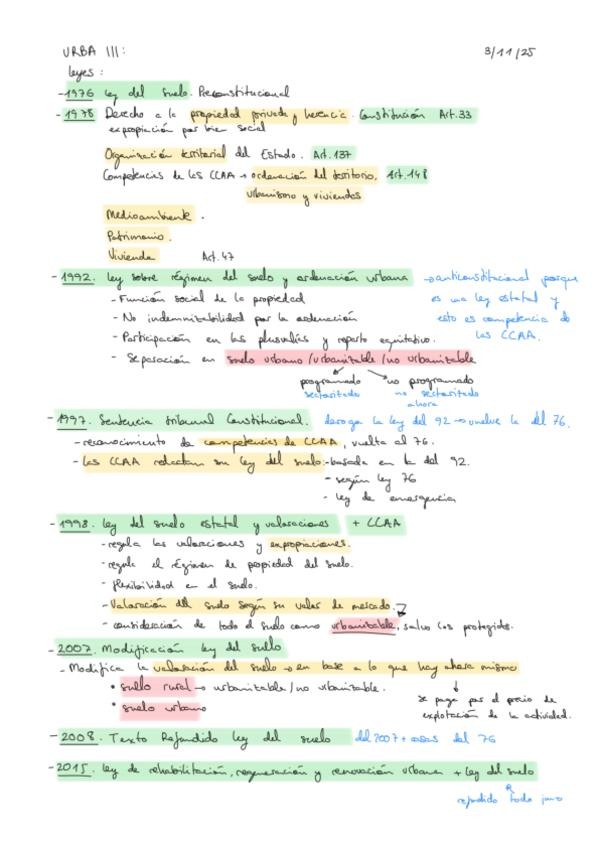 URBA III: 3/11/25
leyes:
- 1976 ley del suelo. Preconstitucional
- 1978 Derecho a la propiedad privada y herencia. Constitución Art.33
expropiación por bien social
Organización territorial del Estado. Art.137
Competencias de las CCAA → ordenación del territorio, Art.148
urbanismo y viviendas
Medioambiente.
Patrimonio.
Vivienda Art.47
- 1992. ley sobre régimen del suelo y ordenación urbana → anticonstitucional porque
es una ley estatal y
esto es competencia de
las CCAA.
- Función social de la propiedad
- No indemnitabilidad por la ordenación
- Participación en las plusvalías y reparto equitativo.
- Separación en suelo urbano / urbanizable / no urbanizable
programado no programado
sectorizado no sectorizado
ahora
- 1997. Sentencia tribunal Constitucional. deroga la ley del 92 → vuelve la del 76.
- reconocimiento de competencias de CCAA, vuelta al 76.
- las CCAA redactan su ley del suelo: - basada en la del 92.
- según ley 76
- ley de emergencia
- 1998. ley del suelo estatal y valoraciones + CCAA
- regula las valoraciones y expropiaciones.
- regula el régimen de propiedad del suelo.
- flexibilidad en el suelo.
- Valoración del suelo según su valor de mercado.
- consideración de todo el suelo como urbanizable, salvo los protegidos.
- 2007. Modificación ley del suelo
- Modifica la valoración del suelo → en base a lo que hay ahora mismo
• suelo rural → urbanizable / no urbanizable.
• suelo urbano
se paga por el precio de
explotación de la actividad.
- 2008. Texto Refundido ley del suelo del 2007 + cosas del 76
- 2015. ley de rehabilitación, regeneración y renovación urbana + ley del suelo
refundido todo junto